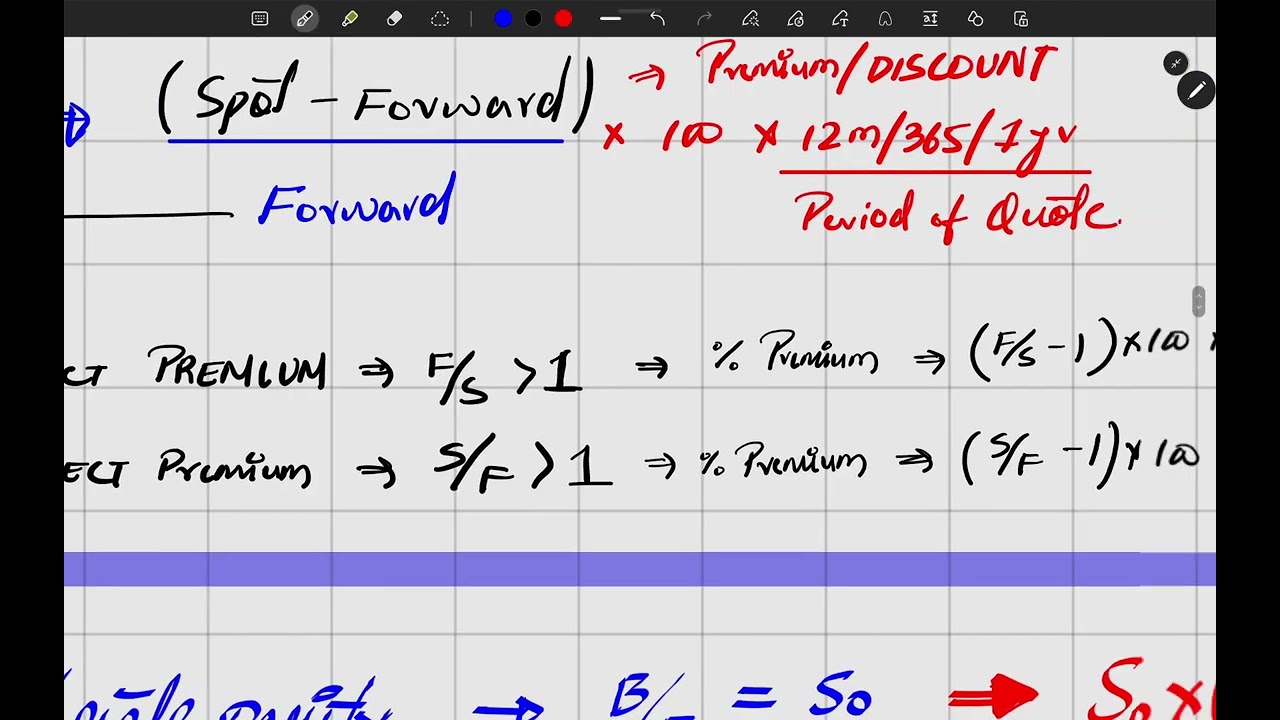 (Spot - Forward) ⇒ Premium/DISCOUNT
Forward × 100 × 12m/365/1yr
Period of Quote.
CT PREMIUM ⇒ F/S > 1 ⇒ % Premium ⇒ (F/S - 1) × 100
ECT Premium ⇒ S/F > 1 ⇒ % Premium ⇒ (S/F - 1) × 100
= S₀ ⇒ S₀ ×